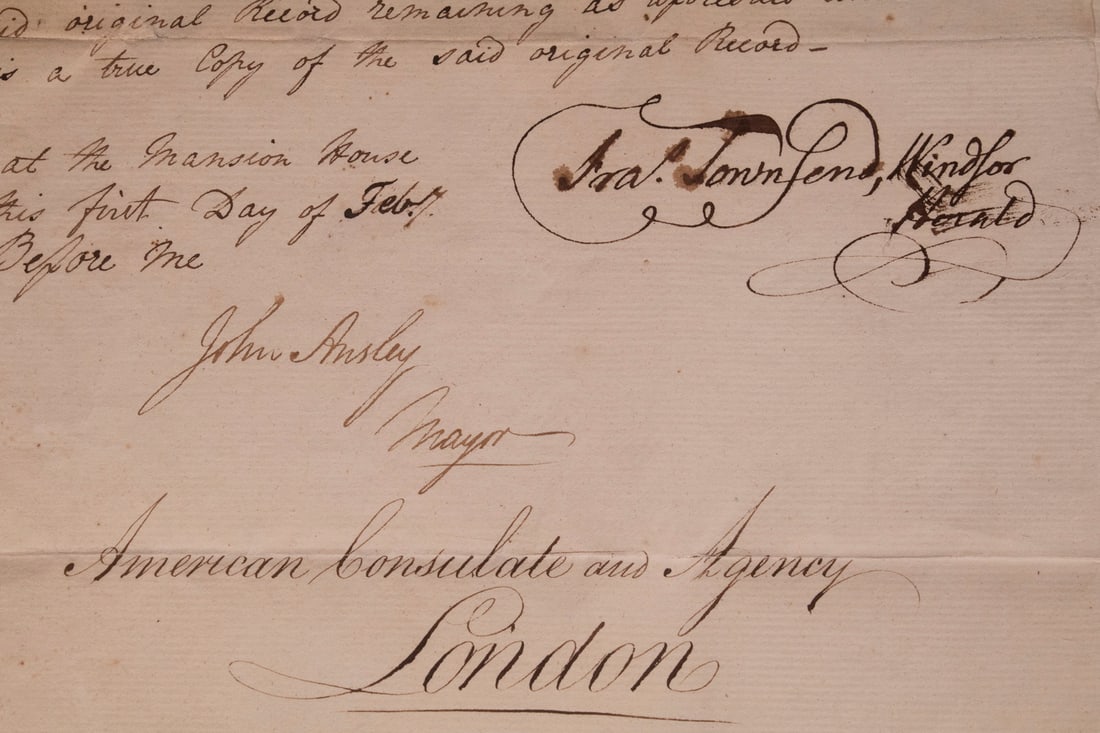 id original Record remaining as aforesaid
is a true Copy of the said original Record—
at the Mansion House
this first Day of Feby.
Before Me
Fras. Townsend, Windsor
Herald
John Ansley
Mayor
American Consulate and Agency
London